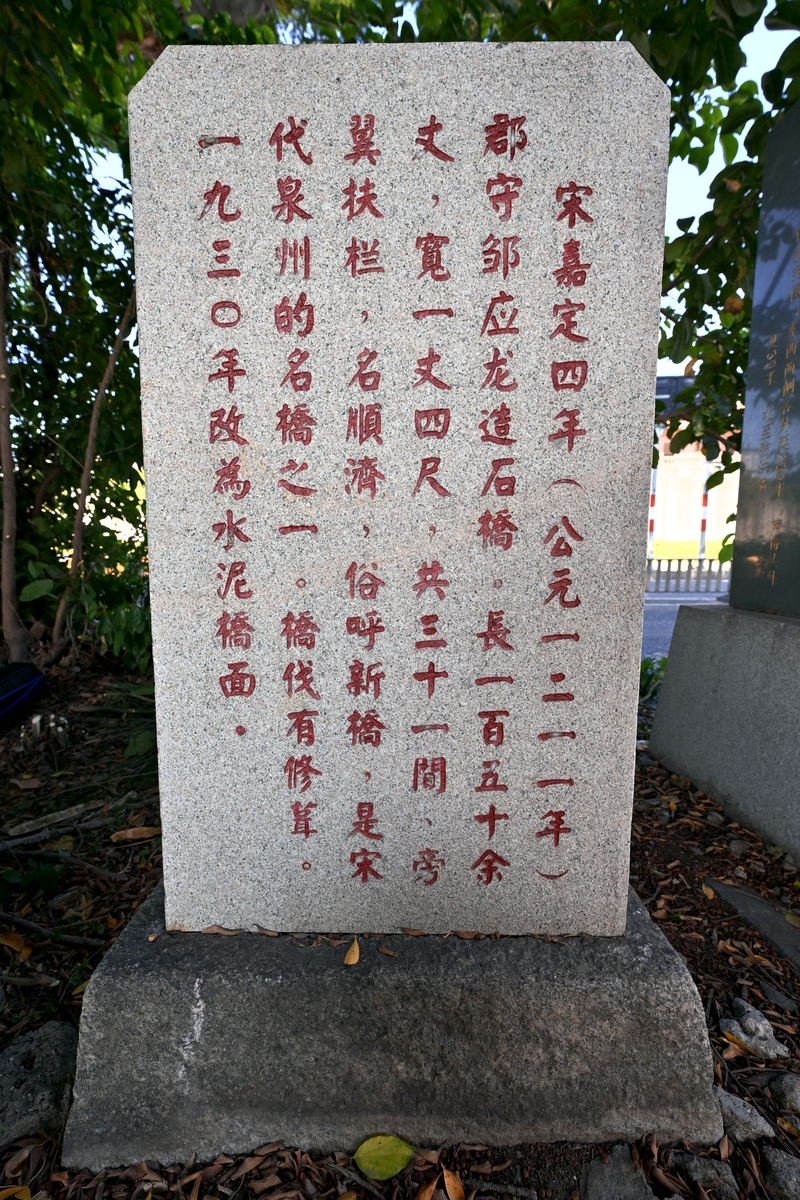 宋嘉定四年（公元一二一一年）
郡守邹应龙造石橋。長一百五十余
丈，寬一丈四尺，共三十一間、旁
翼扶栏，名順濟，俗呼新橋，是宋
代泉州的名橋之一。橋伐有修葺。
一九三〇年改為水泥橋面。